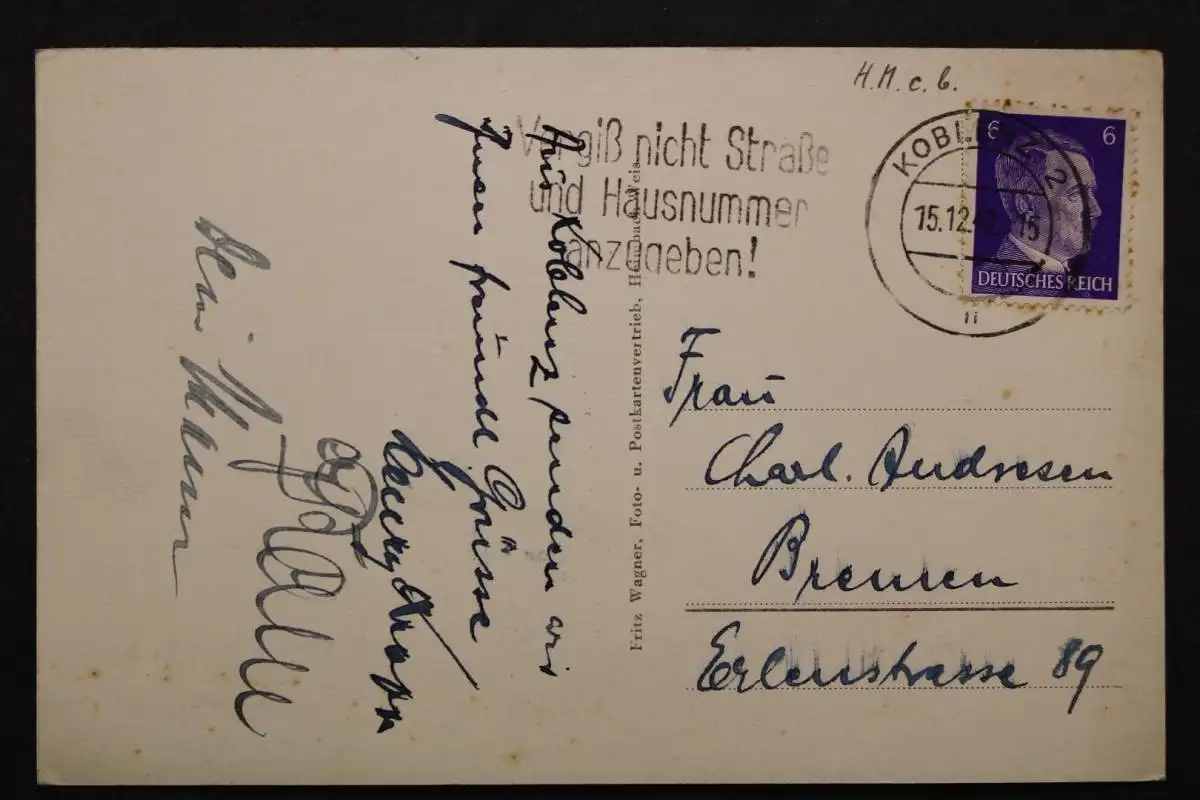 H.M.c.b.
Vergiß nicht Straße
und Hausnummer
anzugeben!
KOBLENZ 2
15.12.42. 15
n
6 6
DEUTSCHES REICH
Aus Koblenz senden wir
Ihnen freundl. Grüsse
Fritz Wagner, Foto- u. Postkartenvertrieb, Heimbach-Weis
Frau
Charl. Andresen
Bremen
Erlenstrasse 89